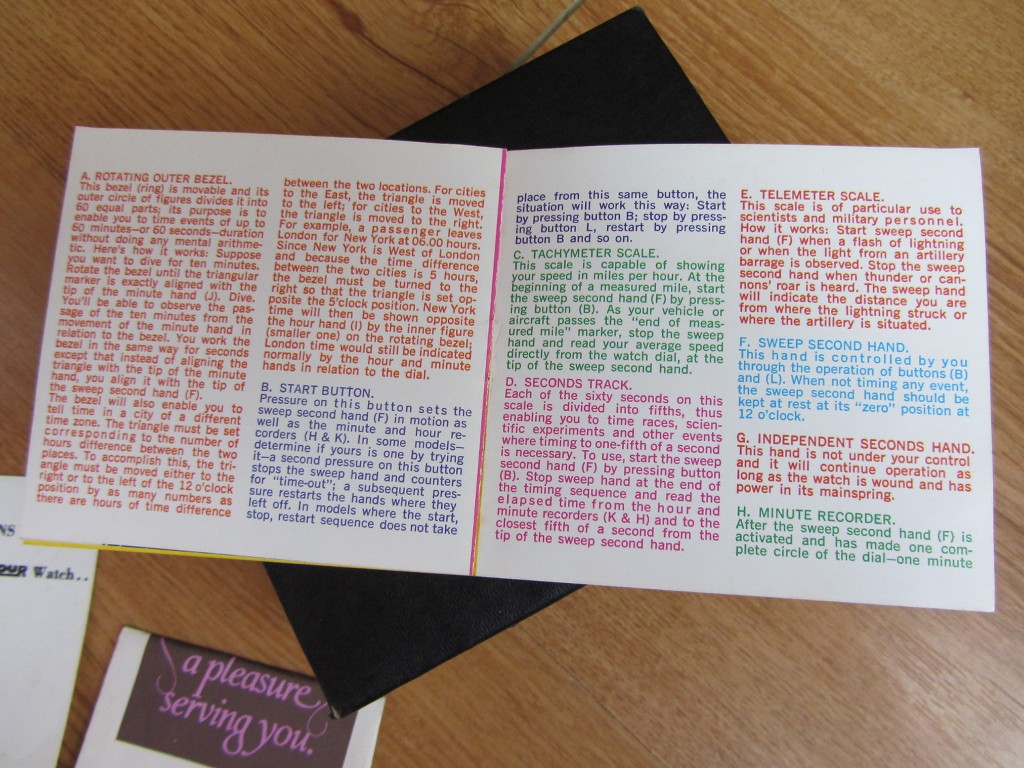 A. ROTATING OUTER BEZEL.
This bezel (ring) is movable and its
outer circle of figures divides it into
60 equal parts; its purpose is to
enable you to time events of up to
60 minutes—or 60 seconds—duration
without doing any mental arithme-
tic. Here's how it works: Suppose
you want to dive for ten minutes.
Rotate the bezel until the triangular
marker is exactly aligned with the
tip of the minute hand (J). Dive.
You'll be able to observe the pas-
sage of the ten minutes from the
movement of the minute hand in
relation to the bezel. You work the
bezel in the same way for seconds
except that instead of aligning the
triangle with the tip of the minute
hand, you align it with the tip of
the sweep second hand (F).
The bezel will also enable you to
tell time in a city of a different
time zone. The triangle must be set
corresponding to the number of
hours difference between the two
places. To accomplish this, the tri-
angle must be moved either to the
right or to the left of the 12 o'clock
position by as many numbers as
there are hours of time difference
between the two locations. For cities
to the East, the triangle is moved
to the left; for cities to the West,
the triangle is moved to the right.
For example, a passenger leaves
London for New York at 06.00 hours.
Since New York is West of London
and because the time difference
between the two cities is 5 hours,
the bezel must be turned to the
right so that the triangle is set op-
posite the 5'clock position. New York
time will then be shown opposite
the hour hand (I) by the inner figure
(smaller one) on the rotating bezel;
London time would still be indicated
normally by the hour and minute
hands in relation to the dial.
B. START BUTTON.
Pressure on this button sets the
sweep second hand (F) in motion as
well as the minute and hour re-
corders (H & K). In some models—
determine if yours is one by trying
it—a second pressure on this button
stops the sweep hand and counters
for "time-out"; a subsequent pres-
sure restarts the hands where they
left off. In models where the start,
stop, restart sequence does not take
place from this same button, the
situation will work this way: Start
by pressing button B; stop by press-
ing button L, restart by pressing
button B and so on.
C. TACHYMETER SCALE.
This scale is capable of showing
your speed in miles per hour. At the
beginning of a measured mile, start
the sweep second hand (F) by press-
ing button (B). As your vehicle or
aircraft passes the "end of meas-
ured mile" marker, stop the sweep
hand and read your average speed
directly from the watch dial, at the
tip of the sweep second hand.
D. SECONDS TRACK.
Each of the sixty seconds on this
scale is divided into fifths, thus
enabling you to time races, scien-
tific experiments and other events
where timing to one-fifth of a second
is necessary. To use, start the sweep
second hand (F) by pressing button
(B). Stop sweep hand at the end of
the timing sequence and read the
elapsed time from the hour and
minute recorders (K & H) and to the
closest fifth of a second from the
tip of the sweep second hand.
E. TELEMETER SCALE.
This scale is of particular use to
scientists and military personnel.
How it works: Start sweep second
hand (F) when a flash of lightning
or when the light from an artillery
barrage is observed. Stop the sweep
second hand when thunder or can-
nons' roar is heard. The sweep hand
will indicate the distance you are
from where the lightning struck or
where the artillery is situated.
F. SWEEP SECOND HAND.
This hand is controlled by you
through the operation of buttons (B)
and (L). When not timing any event,
the sweep second hand should be
kept at rest at its "zero" position at
12 o'clock.
G. INDEPENDENT SECONDS HAND.
This hand is not under your control
and it will continue operation as
long as the watch is wound and has
power in its mainspring.
H. MINUTE RECORDER.
After the sweep second hand (F) is
activated and has made one com-
plete circle of the dial—one minute
Watch..
a pleasure
serving you.